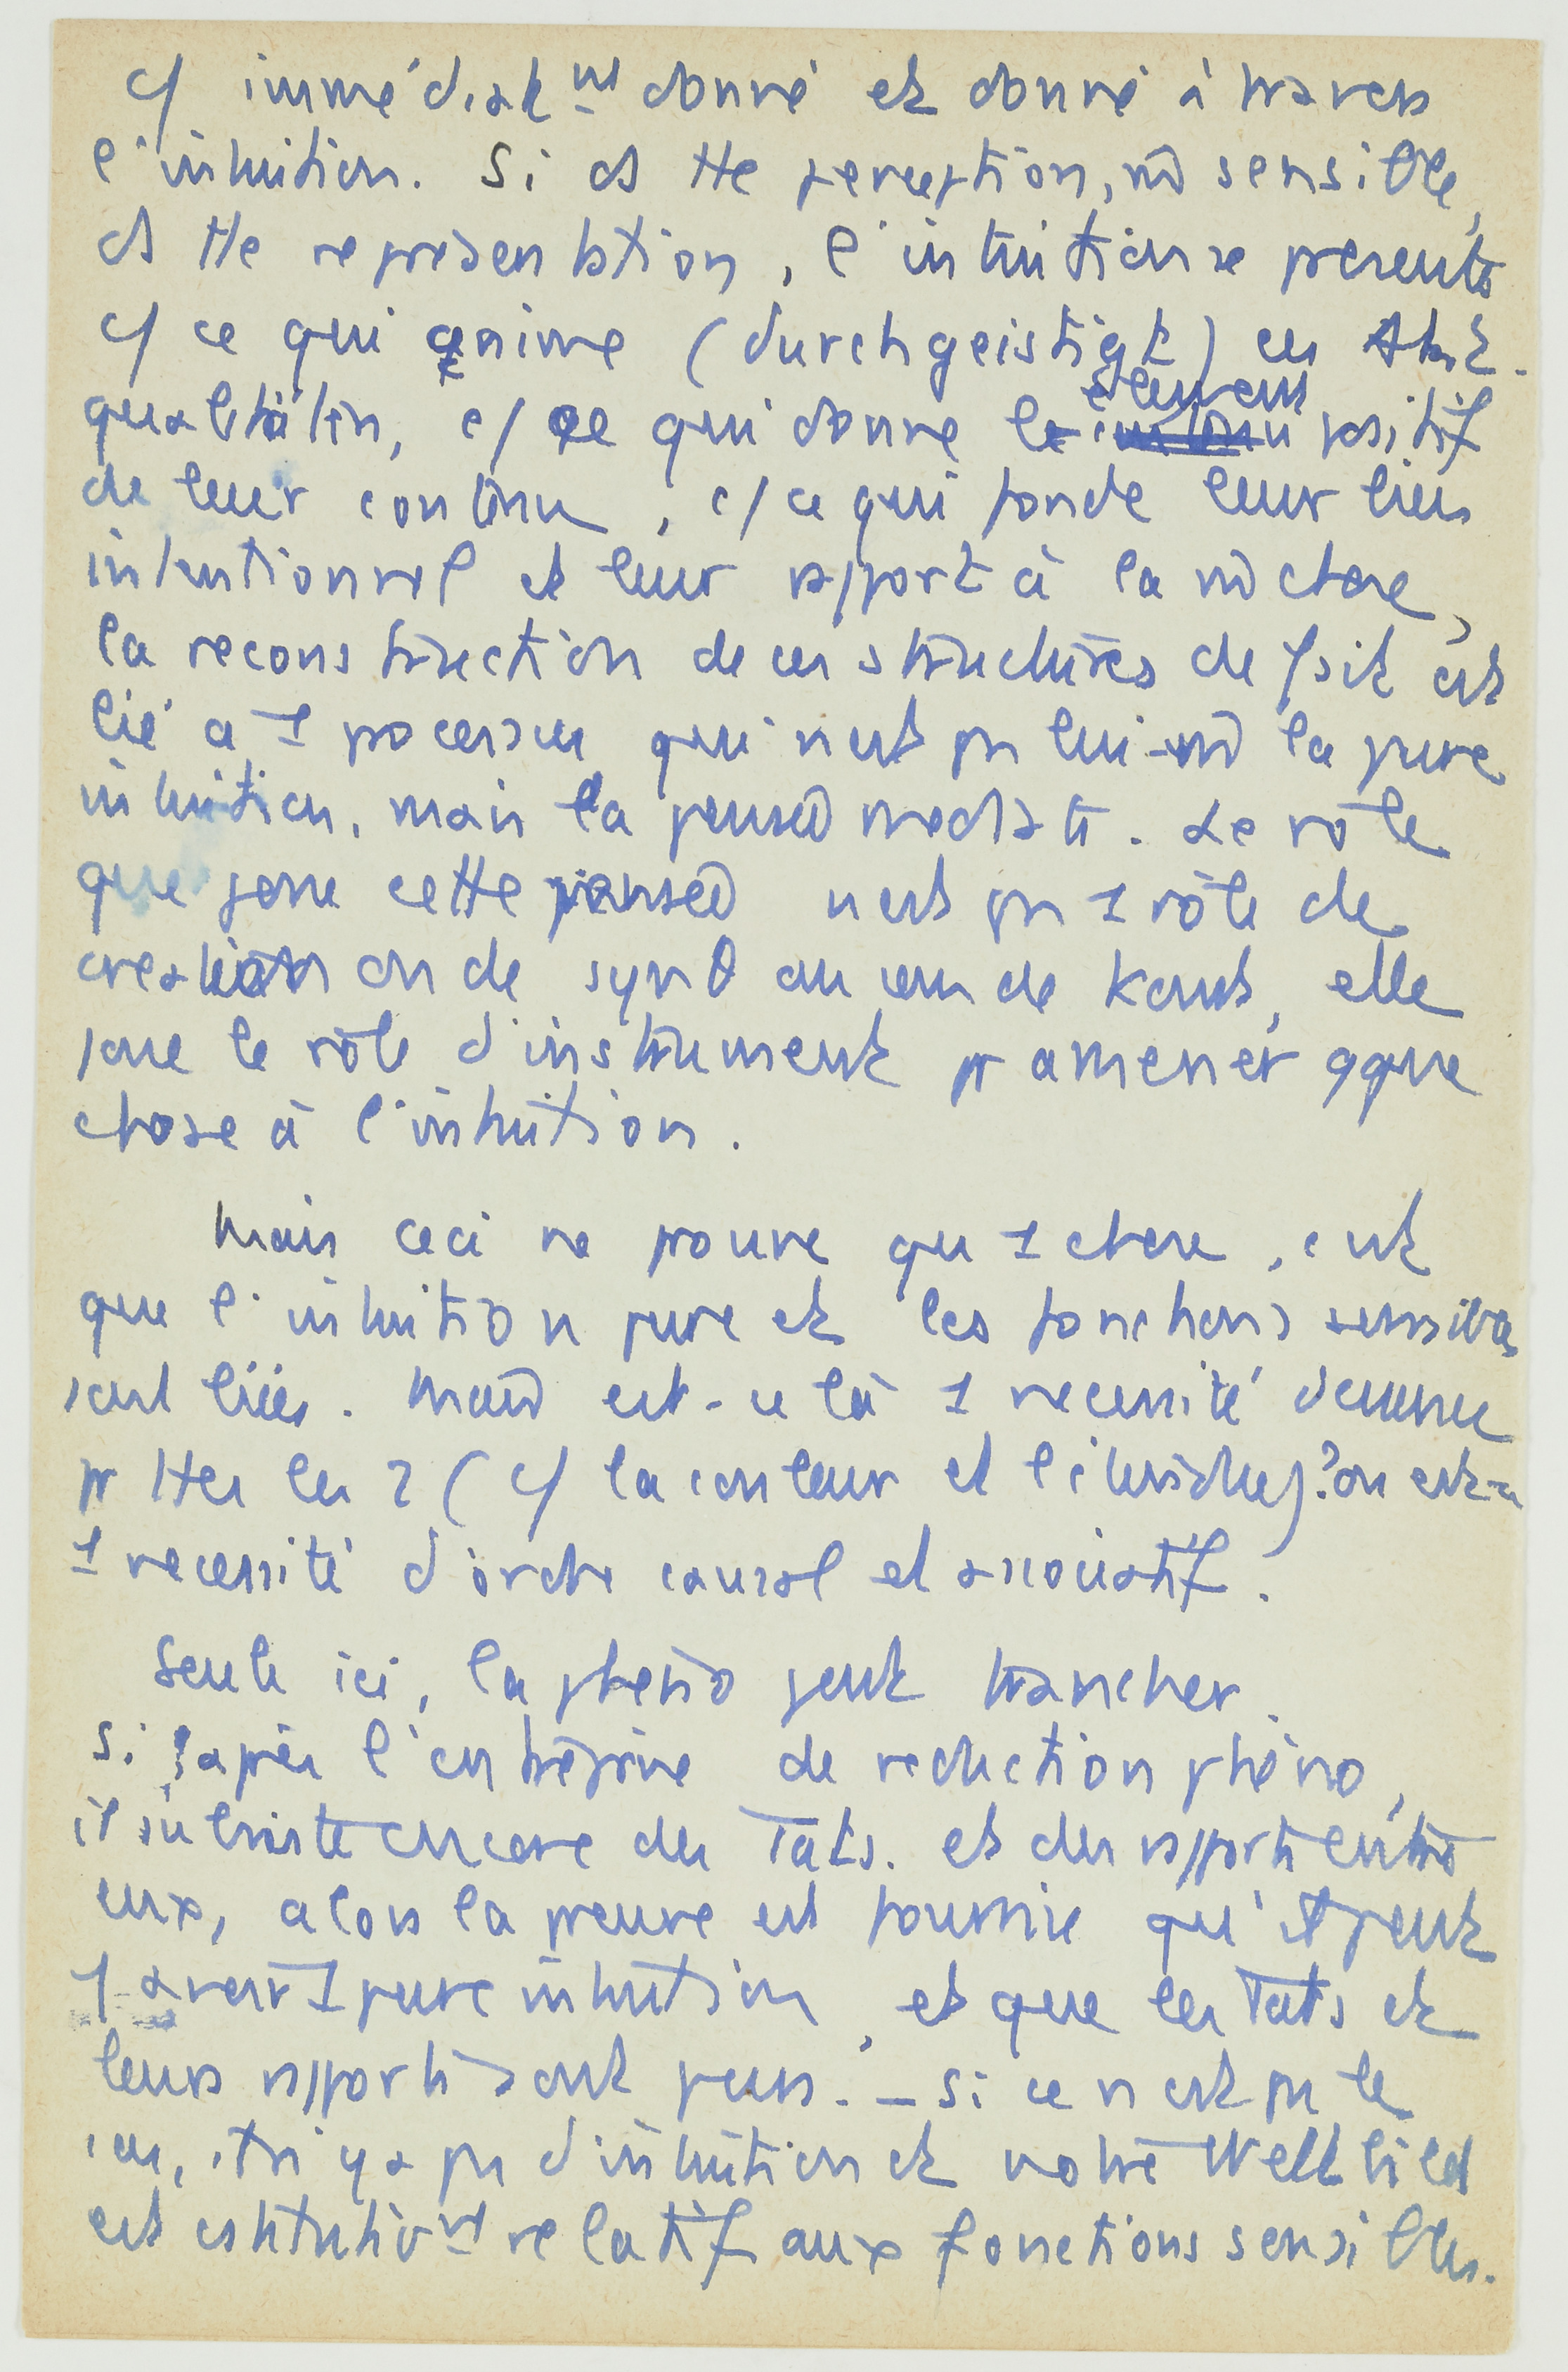 c/ immédiatmt donné et donné à travers
l'intuition. Si ds tte perception, m̂ sensible,
ds tte représentation, l'intuition se présente
c/ ce qui anime (durchgeistigt) ces Akt.
qualitäten, c/ ce qui donne le élément positif
de leur contenu, c/ ce qui fonde leur lien
intentionnel et leur rapport à la m̂ chose,
la reconstruction de ces structures de fait est
lié a 1 processus qui n'est pas lui-m̂ la pure
intuition, mais la pensée médiate. Le rôle
que joue cette pensée n'est pas 1 rôle de
création ou de synθ au sens de Kant, elle
joue le rôle d'instrument pr amener qque
chose à l'intuition.
Mais ceci ne prouve qu'1 chose, c'est
que l'intuition pure et les fonctions sensibles
sont liées. Mais est-ce là 1 nécessité d'essence
pr ttes les 2 (c/ la couleur et l'étendue)? ou est-ce
1 nécessité d'ordre causal et associatif.
Seule ici, la phéno peut trancher.
Si après l'entreprise de réduction phéno,
il subsiste encore des Tats. et des rapports entre
eux, alors la preuve est fournie qu'il peut
y avoir 1 pure intuition, et que les Tats et
leurs rapports sont purs. – Si ce n'est pas le
cas, il n'y a pas d'intuition et notre Weltbild
est cstitutivmt relatif aux fonctions sensibles.